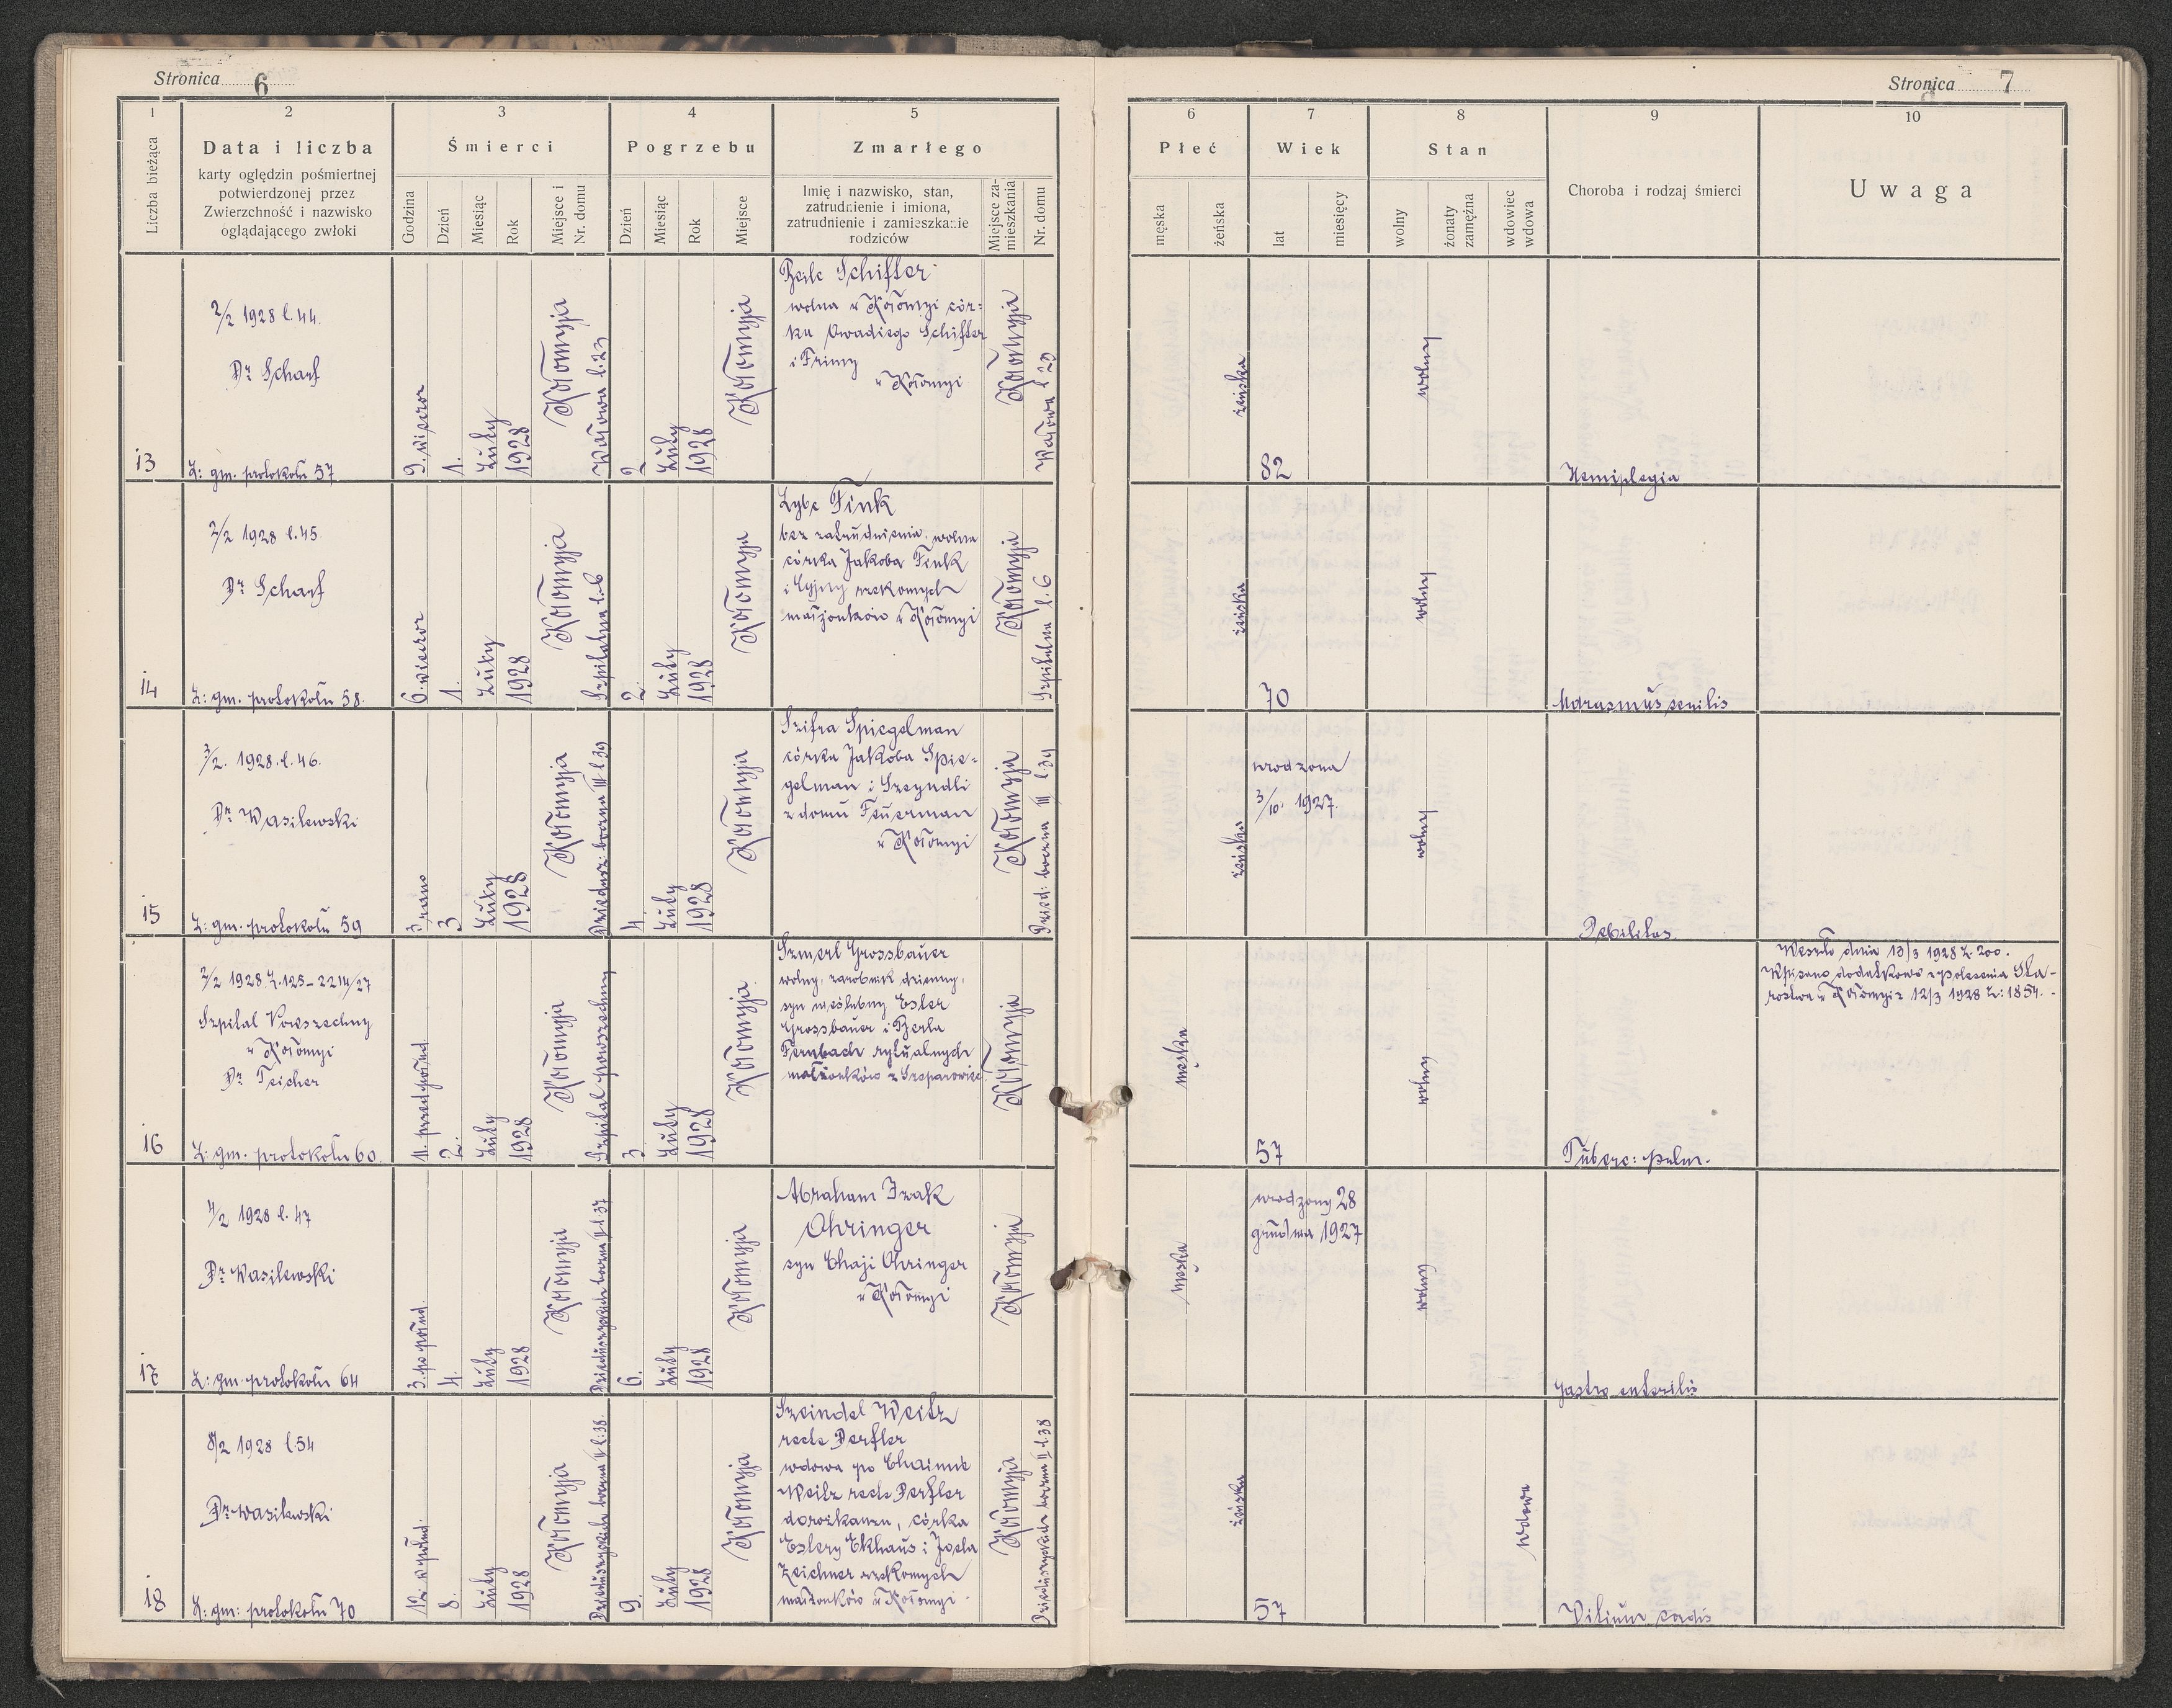 Stronica 6
1
2
3
4
5
Liczba bieżąca
Data i liczba
karty oględzin pośmiertnej
potwierdzonej przez
Zwierzchność i nazwisko
oglądającego zwłoki
Śmierci
Godzina
Dzień
Miesiąc
Rok
Miejsce i
Nr. domu
Pogrzebu
Dzień
Miesiąc
Rok
Miejsce
Zmarłego
Imię i nazwisko, stan,
zatrudnienie i imiona,
zatrudnienie i zamieszkanie
rodziców
Miejsce za-
mieszkania
Nr. domu
13
2/2 1928 l. 44.
Dr Scharf
L: gm. protokołu 57
9. wieczor
1.
Luty
1928
Kołomyja
Wałowa l. 23
2
Luty
1928
Kołomyja
Beile Schiffer
wolna w Kołomyi cór=
ka Owadiego Schiffer
i Frimy
w Kołomyi
Kołomyja
Wałowa l 23
14
2/2 1928 l. 45.
Dr Scharf
L: gm. protokołu 58.
6. wieczor
1.
Luty
1928
Kołomyja
Szpitalna l. 6
2.
Luty
1928
Kołomyja
Lybe Fink
bez zatrudnienia. wolna
córka Jakoba Fink
i rzekomych
małżonków w Kołomyi
Kołomyja
Szpitalna l. 6
15
3/2. 1928. l. 46.
Dr Wasilewski
L: gm. protokołu 59
3 rano
3
Luty
1928
Kołomyja
Dziedusz: boczna III l 39
4.
Luty
1928
Kołomyja
Szifra Spiegelman
córka Jakoba Spie=
gelman i Szeyndli
z domu Feuerman
w Kołomyi
Kołomyja
Dzied: boczna III l 39
16
2/2 1928 L. 125-2214/27
Szpital Powszechny
w Kołomyi
Dr Teicher
L: gm. protokołu 60.
11. przed połud.
2.
Luty
1928
Kołomyja
Szpital powszechny
3.
Luty
1928
Kołomyja
Szmerl Grossbauer
wolny, zarobnik dzienny,
syn nieślubny Ester
Grossbauer i Berla
Fernbach rytualnych
małżonków z
Kołomyja
17
4/2 1928 l. 47
Dr Wasilewski
L: gm. protokołu 64
3. po połud.
4.
Luty
1928
Kołomyja
Dzieduszyckich boczna l. 37
6.
Luty
1928
Kołomyja
Abraham Izak
Ohringer
syn Chaji Ohringer
w Kołomyi
Kołomyja
18
8/2 1928 l. 54
Dr Wasilewski
L: gm: protokołu 70
12. w połud.
8.
Luty
1928
Kołomyja
Dzieduszyckich boczna II l. 38.
9.
Luty
1928
Kołomyja
Szeindel Weitz
recte Derfler
wdowa po Chaimie
Weitz recte Derfler
dorożkarzu, córka
Estery Ekhaus i Josla
Zeichner rzekomych
małżonków w Kołomyi.
Kołomyja
Dzieduszyckich boczna II l. 38
Stronica 7
6
7
8
9
10
Płeć
męska
żeńska
Wiek
lat
miesięcy
Stan
wolny
żonaty
zamężna
wdowiec
wdowa
Choroba i rodzaj śmierci
Uwaga
żeńska
82
wolny
Hemiplegia
żeńska
70
wolny
Marasmus senilis
żeńska
urodzona
3/10. 1927.
wolny
Debilitas.
męska
57
wolny
Tuberc: pulm.
Weszło dnia 13/3 1928 L. 200.
Wpisano dodatkowo z polecenia Sta-
rostwa w Kołomyi z 12/3 1928 L: 1854.
męska
urodzony 28
grudnia 1927
wolny
Gastro enteritis
żeńska
57
wdowa
Vitium cordis